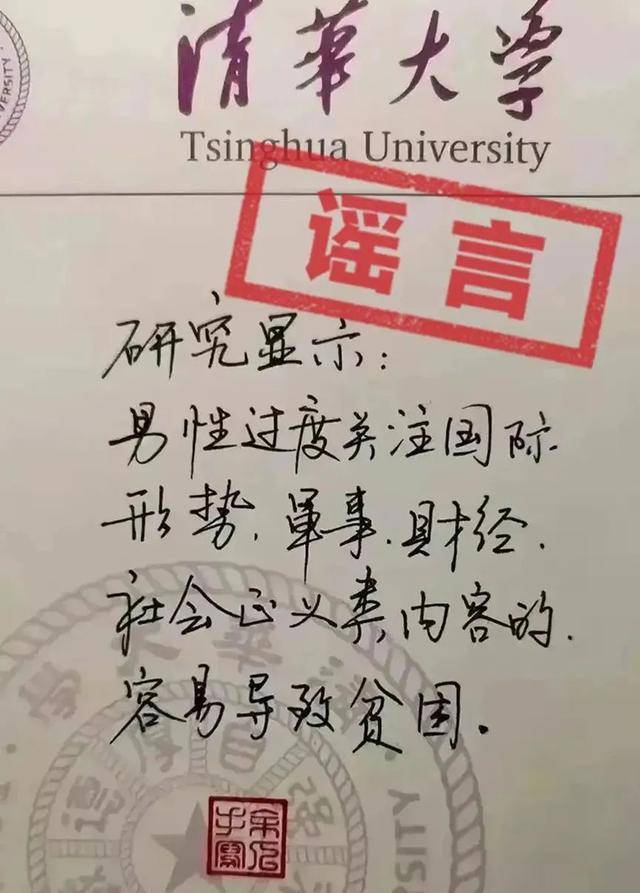 清華大学
Tsinghua University
谣言
研究显示:
男性过度关注国际
形势、軍事、財经、
社会正义类内容的、
容易导致贫困。